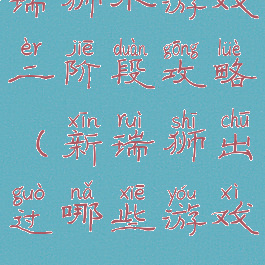 瑞狮水游戏
èr jiē duàn gōng lüè
二阶段攻略
xīn ruì shī chū
（新瑞狮出
guò nǎ xiē yóu xì
过哪些游戏